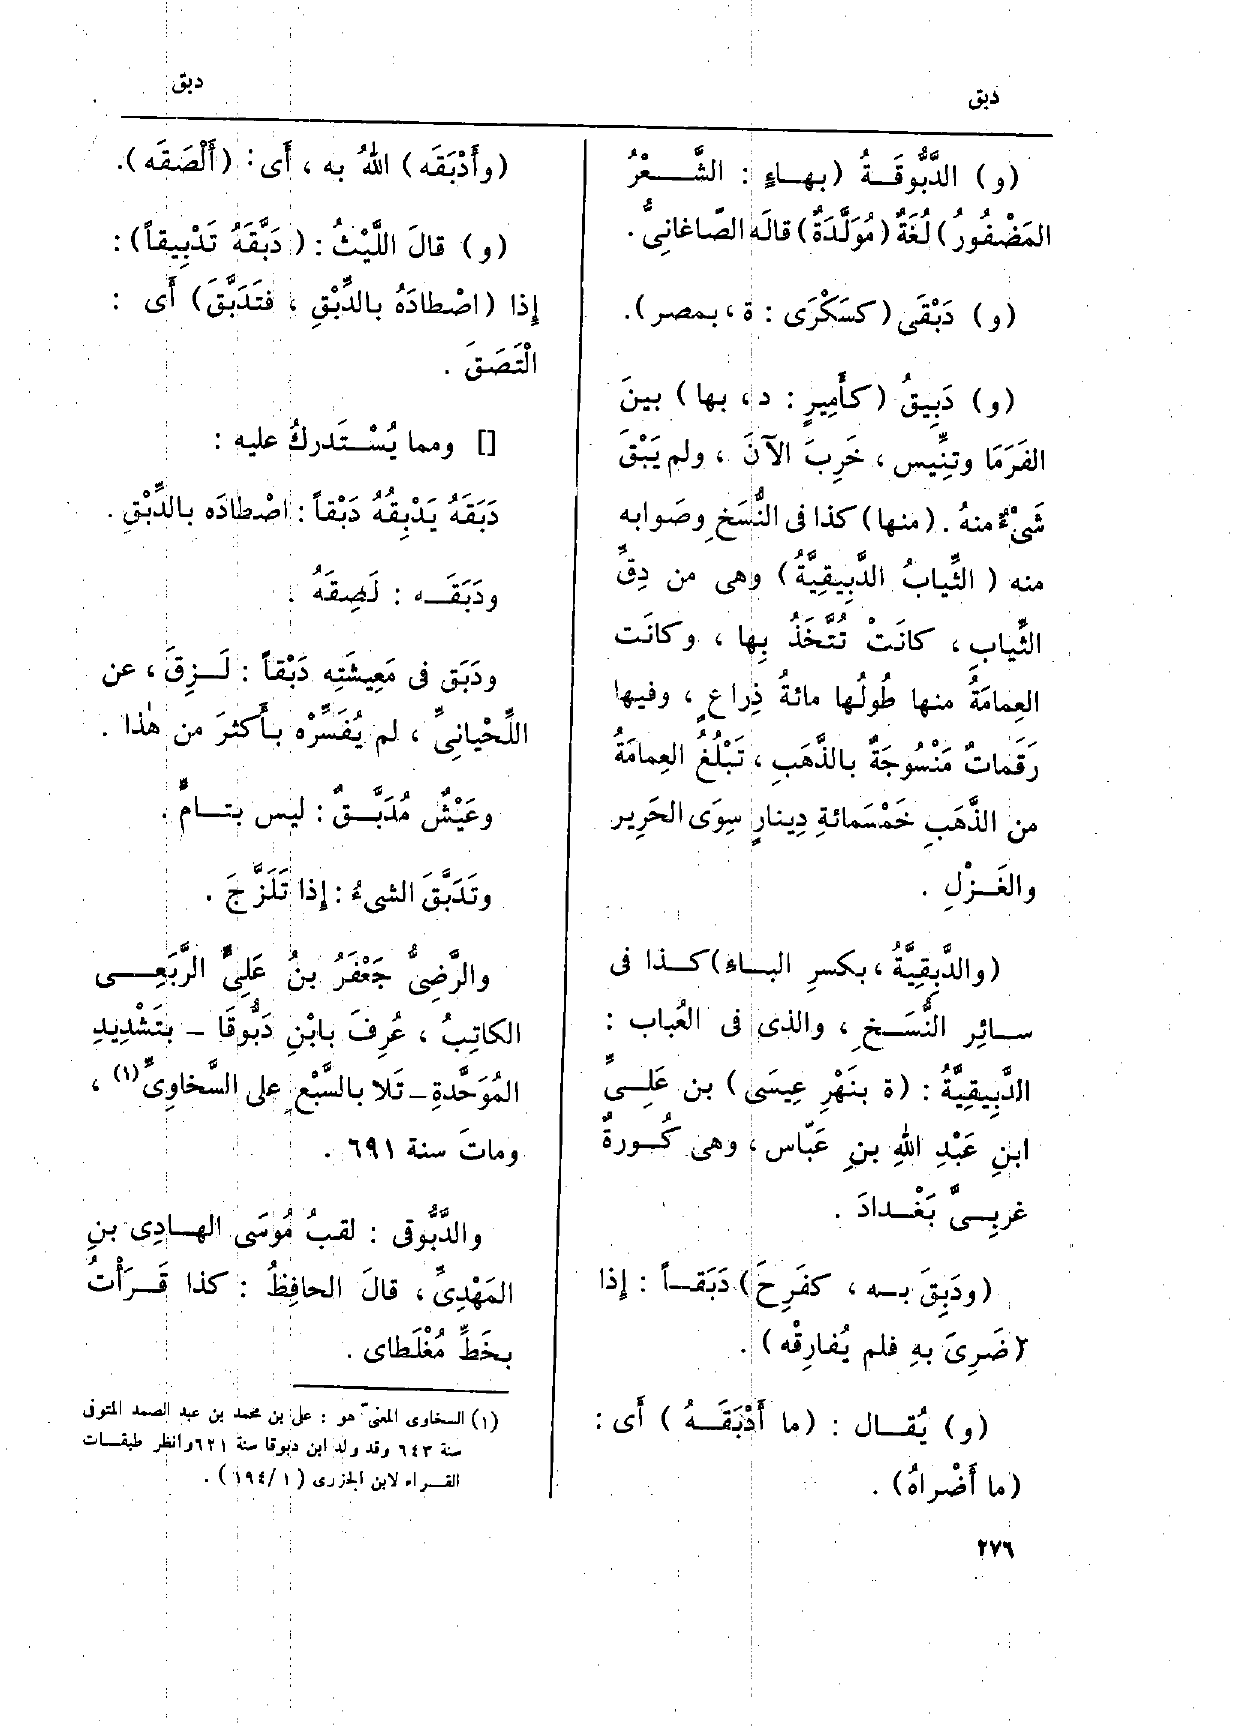 دبق
دبق
(و) الدَّبُّوقَةُ (بهاءٍ : الشَّعْرُ
المَضْفُورُ) لُغَةٌ (مُوَلَّدَةٌ) قالَه الصّاغانِىُّ .
(و) دَبْقَى (كسَكْرَى : ة ، بمصر) .
(و) دَبِيقُ (كأَمِيرٍ : د ، بها) بينَ
الفَرَمَا وتِنِّيس ، خَرِبَ الآنَ ، ولم يَبْقَ
شَىْءٌ منهُ . (منها) كذا فى النُّسَخِ وصَوابه
منه (الثِّيابُ الدَّبِيقِيَّةُ) وهى من دِقِّ
الثِّيابِ ، كانَتْ تُتَّخَذُ بِها ، وكانَت
العِمامَةُ منها طُولُها مائةُ ذِراعٍ ، وفيها
رَقَماتٌ مَنْسُوجَةٌ بالذَّهَبِ ، تَبْلُغُ العِمامَةُ
من الذَّهَبِ خَمْسَمائةِ دِينارٍ سِوَى الحَرِيرِ
والغَزْلِ .
(والدَّبِقِيَّةُ ، بكسرِ الباء) كذا فى
سائِر النُّسَخِ ، والذى فى العُباب :
الدَّبِيقِيَّةُ : (ة بنَهْرِ عِيسَى) بن عَلِىِّ
ابنِ عَبْدِ اللهِ بنِ عَبّاس ، وهى كُورةٌ
غربِىَّ بَغْدادَ .
(ودَبِقَ به ، كفَرِحَ) دَبَقاً : إذا
(ضَرِىَ بهِ فلم يُفارِقْه) .
(و) يُقال : (ما أَدْبَقَهُ) أَى :
(ما أَضْراهُ) .
(وأَدْبَقَه) اللهُ به ، أَى : (أَلْصَقَه) .
(و) قالَ اللَّيْثُ : (دَبَّقَهُ تَدْبِيقاً) :
إذا (اصْطادَهُ بالدِّبْقِ ، فتَدَبَّقَ) أَى :
الْتَصَقَ .
[] ومما يُسْتَدركُ عليه :
دَبَقَهُ يَدْبِقُهُ دَبْقاً : اصْطادَه بالدِّبْقِ .
ودَبَقَه : لَصِقَهُ .
ودَبَق فى مَعِيشَتِه دَبْقاً : لَزِقَ ، عن
اللِّحْيانِىِّ ، لم يُفَسِّرْه بأَكثرَ من هٰذا .
وعَيْشٌ مُدَبَّقٌ : ليس بتامٍّ .
وتَدَبَّقَ الشىءُ : إذا تَلَزَّجَ .
والرَّضِىُّ جَعْفَرُ بنُ عَلِىٍّ الرَّبَعِى
الكاتِبُ ، عُرِفَ بابْنِ دَبُّوقَا - بتَشْدِيدِ
المُوَحَّدةِ - تَلا بالسَّبْعِ على السَّخاوِىِّ(١) ،
وماتَ سنة ٦٩١ .
والدَّبُّوقى : لقبُ مُوسَى الهادِى بنِ
المَهْدِىِّ ، قالَ الحافِظُ : كذا قَرَأْتُ
بخَطِّ مُغْلَطاى .
(١) السخاوى المعنىّ هو : على بن محمد بن عبد الصمد المتوفى
سنة ٦٤٣ وقد ولد ابن دبوقا سنة ٦٢١ وانظر طبقات
القراء لابن الجزرى (١/ ١٩٤) .
٢٧٦